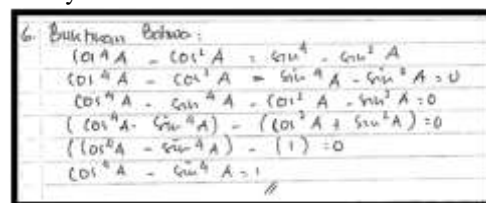 6. Buktikan Bahwa :
Cos⁴ A - Cos² A = sin⁴ - sin² A
Cos⁴ A - Cos² A = Sin⁴ A - Sin² A = 0
Cos⁴ A - Sin⁴ A - Cos² A - Sin² A = 0
( Cos⁴ A - Sin⁴ A ) - ( Cos² A + Sin² A ) = 0
( Cos⁴ A - Sin⁴ A ) - ( 1 ) = 0
Cos⁴ A - Sin⁴ A = 1
//